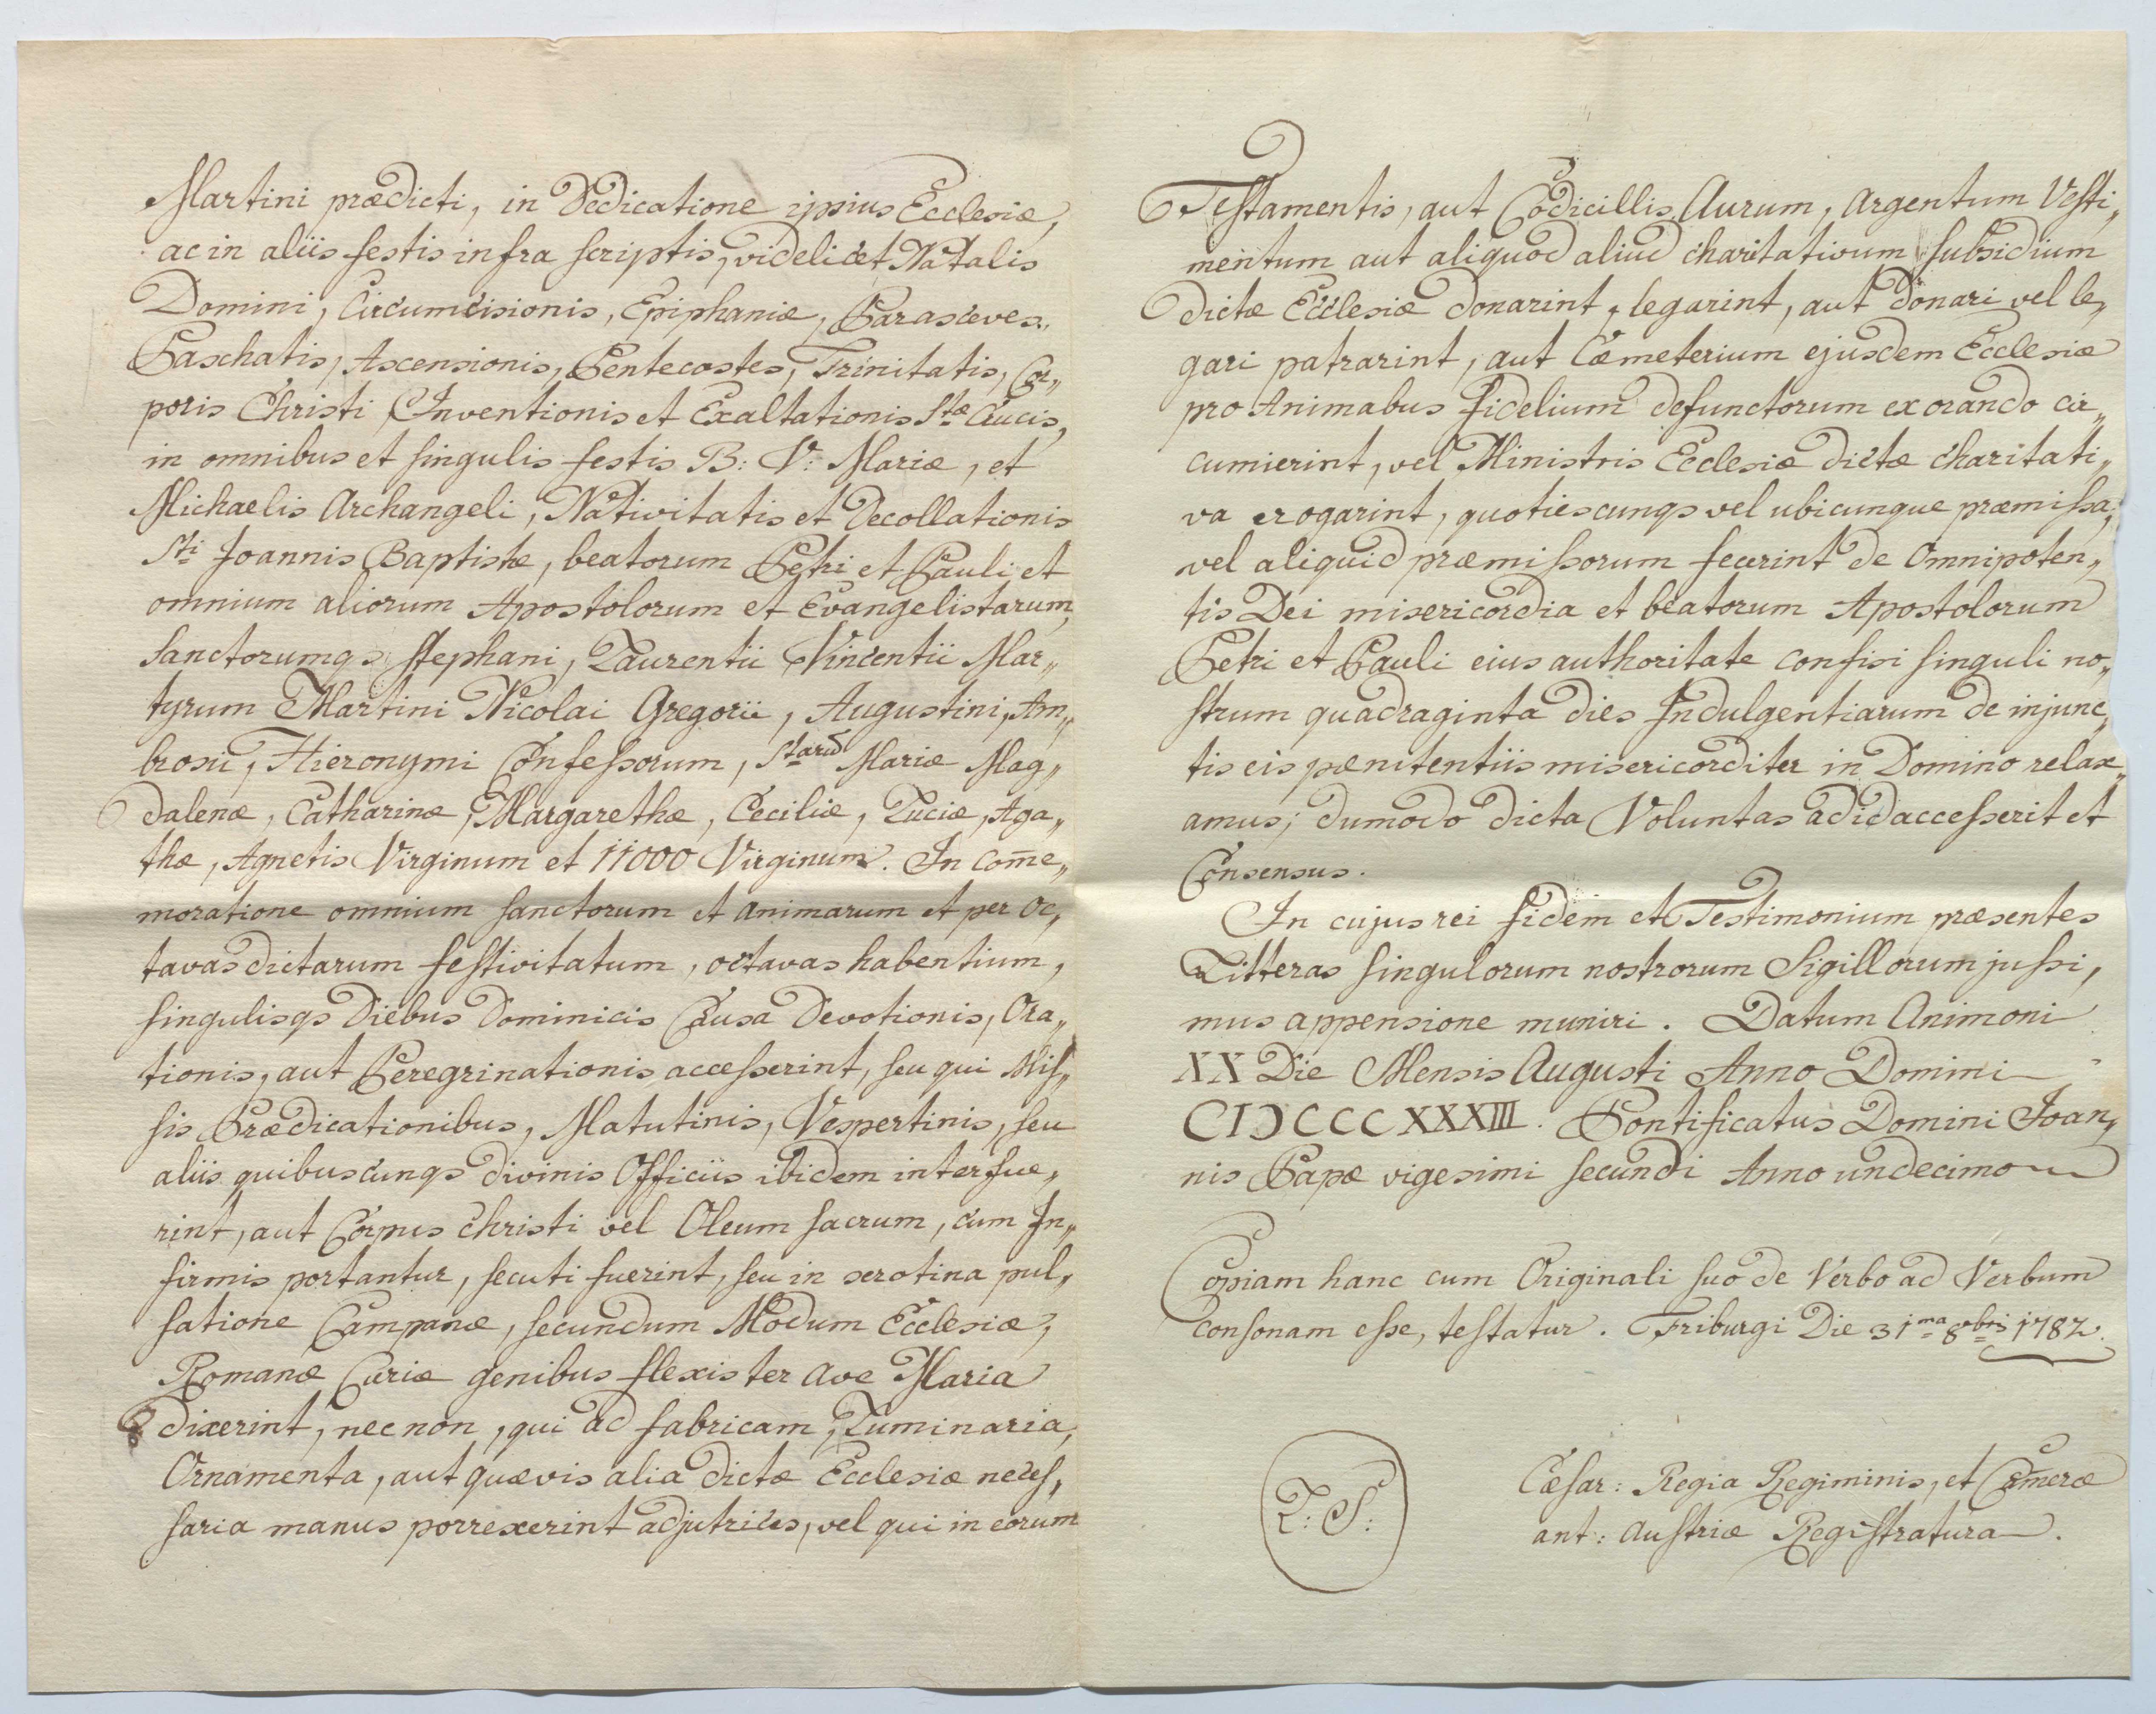 Martini prædicti, in Dedicatione ipsius Ecclesiæ,
ac in aliis festis infra scriptis, videlicet Natalis
Domini, Circumcisionis, Epiphaniæ, Parasceves,
Paschatis, Ascensionis, Pentecostes, Trinitatis, Cor„
poris Christi, Inventionis et Exaltationis Stæ Crucis,
in omnibus et singulis festis B: V: Mariæ, et
Michaelis Archangeli, Nativitatis et Decollationis
Sti Joannis Baptistæ, beatorum Petri et Pauli et
omnium aliorum Apostolorum et Evangelistarum,
Sanctorumqs Stephani, Laurentii Vincentii Mar„
tyrum Martini Nicolai Gregorii, Augustini, Am„
brosii, Hieronymi Confessorum, Starū Mariæ Mag„
dalenæ, Catharinæ, Margarethæ, Ceciliæ, Luciæ, Aga„
thæ, Agnetis Virginum et 11000 Virginum. In com̄e„
moratione omnium sanctorum et animarum et per oc„
tavas dictarum festivitatum, octavas habentium,
singulisqs Diebus Dominicis Causa Devotionis, Ora„
tionis, aut Peregrinationis accesserint, seu qui Mis„
sis Prædicationibus, Matutinis, Vespertinis, seu
aliis quibuscunqs divinis Officiis ibidem interfue„
rint, aut Corpus Christi vel Oleum sacrum, cum In„
firmis portantur, secuti fuerint, seu in serotina pul„
satione Campanæ, secundum Modum Ecclesiæ,
Romanæ Curiæ genibus flexis ter Ave Maria
dixerint, nec non, qui ad fabricam, Luminaria,
Ornamenta, aut quævis alia dictæ Ecclesiæ neces„
saria manus porrexerint adjutrices, vel qui in eorum
Testamentis, aut Codicillis Aurum, Argentum Vesti„
mentum aut aliquod aliud charitativum subsidium
dictæ Ecclesiæ donarint, legarint, aut donari vel le„
gari patrarint, aut Cœmeterium ejusdem Ecclesiæ
pro Animabus fidelium defunctorum exorando cir„
cumierint, vel Ministris Ecclesiæ dictæ charitati„
va erogarint, quotiescunqs vel ubicunque præmissa,
vel aliquid præmissorum fecerint de Omnipoten„
tis Dei misericordia et beatorum Apostolorum
Petri et Pauli eius authoritate confisi singuli no„
strum quadraginta dies Indulgentiarum de injunc„
tis eis pænitentiis misericorditer in Domino relax„
amus; dumodo dicta Voluntas ad id accesserit et
Consensus.
In cujus rei fidem et Testimonium præsentes
Litteras singulorum nostrorum Sigillorum jussi„
mus appensione muniri. Datum Animoni
XX Die Mensis Augusti Anno Domini
CIƆCCCXXXIII. Pontificatus Domini Joan„
nis Papæ vigesimi secundi Anno undecimo
Copiam hanc cum Originali suo de Verbo ad Verbum
consonam esse, testatur. Friburgi Die 31ma 8bris 1782.
L: S:
Cæsar: Regia Regiminis, et Cam̄eræ
ant: Austriæ Registratura.